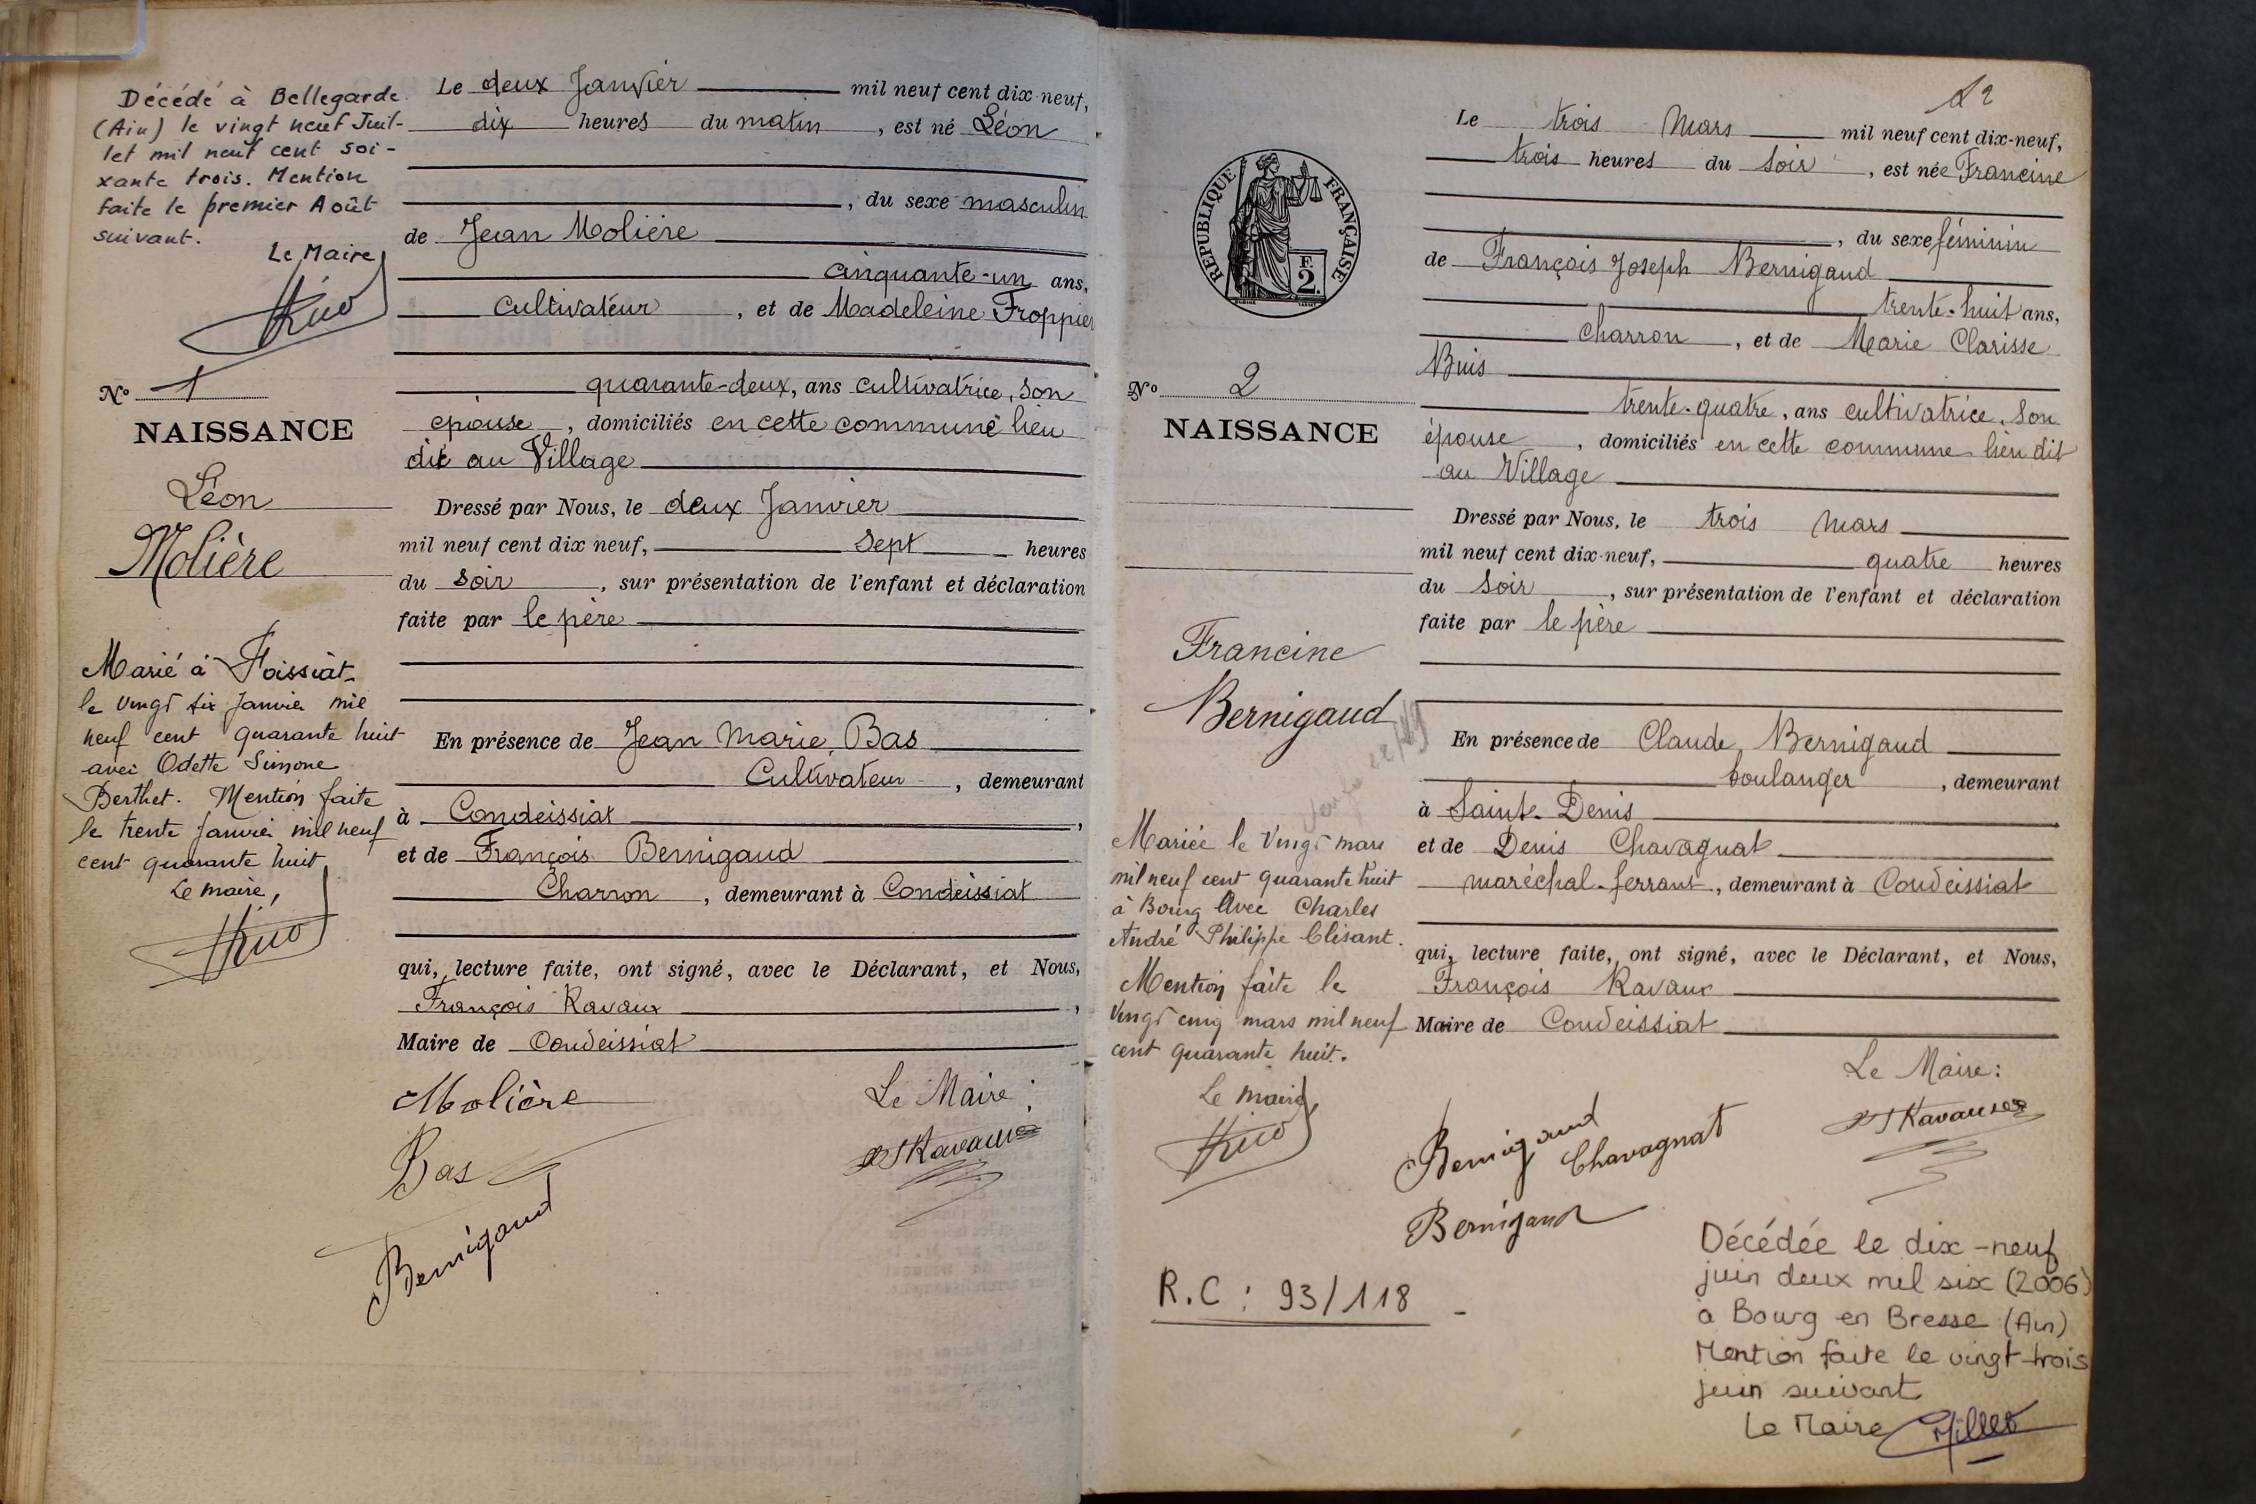 Décédé à Bellegarde
(Ain) le vingt neuf Juil-
let mil neuf cent soi-
xante trois. Mention
faite le premier Août
suivant.
Le Maire
No 1
NAISSANCE
Léon
Molière
Marié à Foissiat
le vingt six Janvier mil
neuf cent quarante huit
avec Odette Simone
Berthet. Mention faite
le trente Janvier mil neuf
cent quarante huit
Le maire,
Le deux Janvier mil neuf cent dix-neuf,
dix heures du matin, est né Léon
, du sexe masculin
de Jean Molière
cinquante-un ans,
cultivateur, et de Madeleine Froppier
quarante-deux, ans cultivatrice, son
épouse, domiciliés en cette commune lieu
dit au Village
Dressé par Nous, le deux Janvier
mil neuf cent dix neuf, sept heures
du soir, sur présentation de l'enfant et déclaration
faite par le père
En présence de Jean Marie Bas
Cultivateur, demeurant
à Condeissiat,
et de François Bernigaud
Charron, demeurant à Condeissiat
qui, lecture faite, ont signé, avec le Déclarant, et Nous,
François Ravaux,
Maire de Condeissiat
Molière
Le Maire:
Bas
Ravaux
Bernigaud
RÉPUBLIQUE FRANÇAISE
F.
2.
No 2
NAISSANCE
Francine
Bernigaud
Mariée le vingt mars
mil neuf cent quarante huit
à Bourg avec Charles
André Philippe Clisant.
Mention faite le
vingt cinq mars mil neuf
cent quarante huit.
Le maire,
R.C : 93/118 -
Le trois Mars mil neuf cent dix-neuf,
trois heures du soir, est née Francine
, du sexe féminin
de François Joseph Bernigaud
trente-huit ans,
charron, et de Marie Clarisse
Buis
trente-quatre, ans cultivatrice, son
épouse, domiciliés en cette commune lieu dit
au Village
Dressé par Nous, le trois mars
mil neuf cent dix-neuf, quatre heures
du soir, sur présentation de l'enfant et déclaration
faite par le père
En présence de Claude Bernigaud
boulanger, demeurant
à Saint-Denis
et de Denis Chavagnat
maréchal-ferrant, demeurant à Condeissiat
qui, lecture faite, ont signé, avec le Déclarant, et Nous,
François Ravaux
Maire de Condeissiat
Le Maire:
Bernigaud
Chavagnat
Ravaux
Bernigaud
Décédée le dix-neuf
juin deux mil six (2006)
à Bourg en Bresse (Ain)
Mention faite le vingt-trois
juin suivant
Le Maire Millet